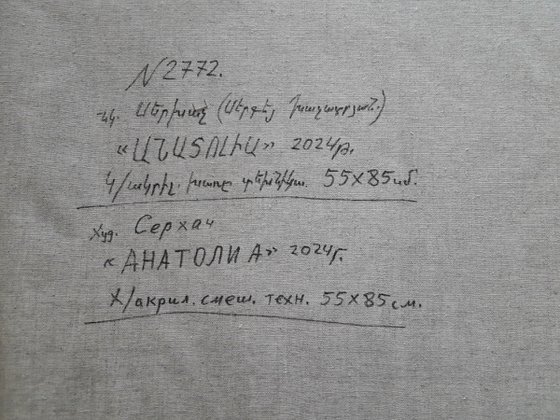 N 2772.
նկ. Սերխաչ (Սերգեյ Խաչատրյան)
«ԱՆԱՏՈԼԻԱ» 2024թ.
Կ/ակրիլ. խառը տեխնիկա. 55x85սմ.
Худ. Серхач
«АНАТОЛИА» 2024г.
Х/акрил. смеш. техн. 55x85см.